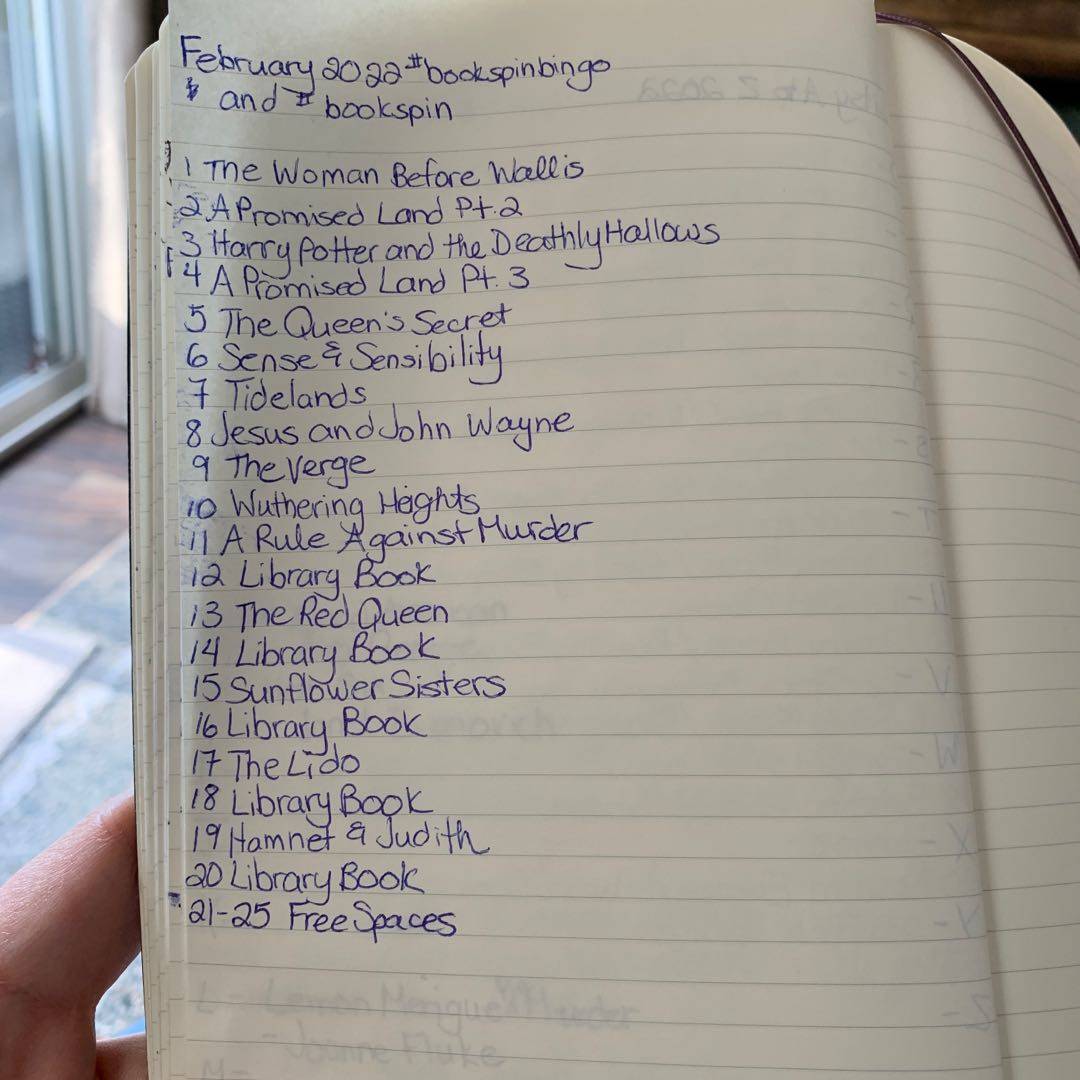 February 2022 #bookspinbingo
and # bookspin
1 The Woman Before Wallis
2 A Promised Land Pt. 2
3 Harry Potter and the Deathly Hallows
4 A Promised Land Pt. 3
5 The Queen's Secret
6 Sense & Sensibility
7 Tidelands
8 Jesus and John Wayne
9 The Verge
10 Wuthering Heights
11 A Rule Against Murder
12 Library Book
13 The Red Queen
14 Library Book
15 Sunflower Sisters
16 Library Book
17 The Lido
18 Library Book
19 Hamnet & Judith
20 Library Book
21-25 Free Spaces
L - Lemon Meringue Murder
- Joanne Fluke
M-